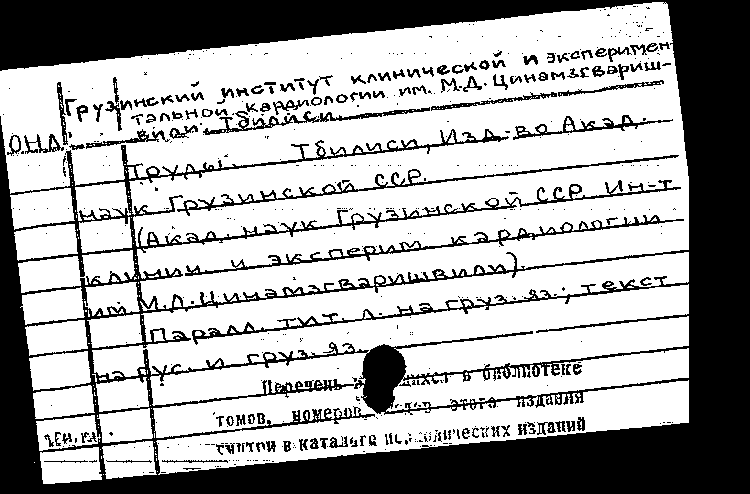 Грузинский институт клинической и эксперимен-
тальной кардиологии им. М.Д. Цинамзгвариш-
вили. Тбилиси.
ОНА
Труды. Тбилиси, Изд-во Акад.
наук Грузинской ССР.
(Акад. наук Грузинской ССР. Ин-т
клинич. и эксперим. кардиологии
им. М.Д. Цинамзгваришвили).
Паралл. тит. л. на груз. яз.; текст
на рус. и груз. яз.
Перечень в библиотеке
томов, номеров, этого издания
смотри в каталоге периодических изданий